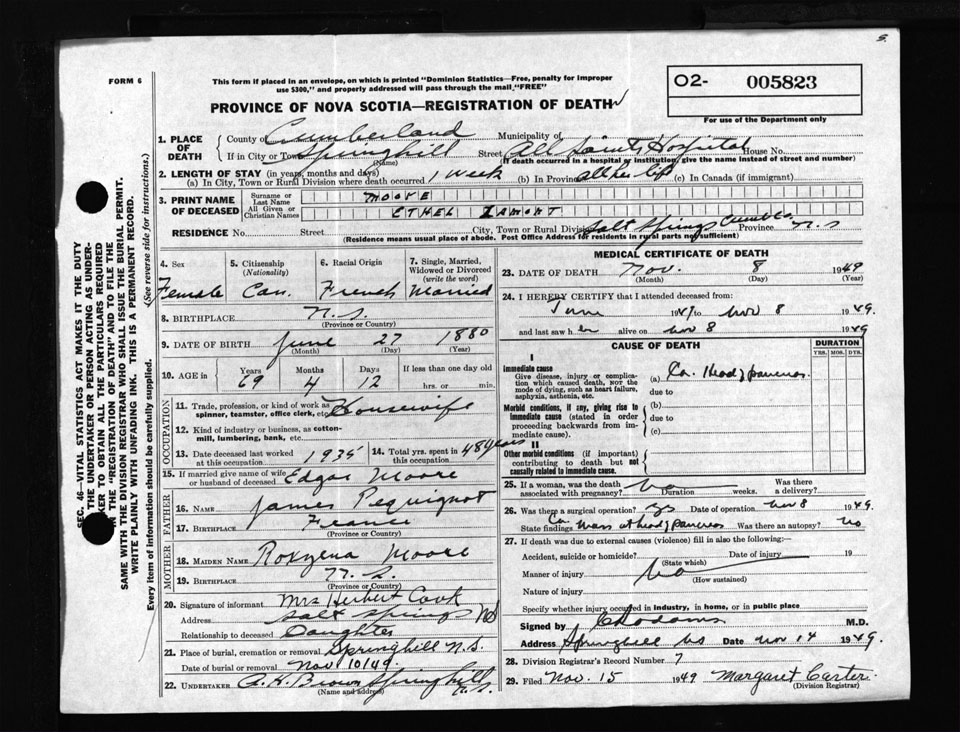 S.
FORM 6
This form if placed in an envelope, on which is printed "Dominion Statistics—Free, penalty for improper
use $300," and properly addressed will pass through the mail "FREE"
PROVINCE OF NOVA SCOTIA—REGISTRATION OF DEATH
O2- 005823
For use of the Department only
1. PLACE OF DEATH
County of Cumberland Municipality of
If in City or Town Springhill Street All Saints Hospital House No.
(Name) (If death occurred in a hospital or institution, give the name instead of street and number)
2. LENGTH OF STAY (in years, months and days)
(a) In City, Town or Rural Division where death occurred 1 week (b) In Province all her life (c) In Canada (if immigrant)
3. PRINT NAME OF DECEASED
Surname or Last Name MOORE
All Given or Christian Names ETHEL
RESIDENCE No. Street City, Town or Rural Division Salt Springs Cumb Co. Province N.S
(Residence means usual place of abode. Post Office Address for residents in rural parts not sufficient)
4. Sex Female
5. Citizenship (Nationality) Can.
6. Racial Origin French
7. Single, Married, Widowed or Divorced (write the word) Married
8. BIRTHPLACE N.S.
(Province or Country)
9. DATE OF BIRTH June 27 1880
(Month) (Day) (Year)
10. AGE in Years 69 Months 4 Days 12 If less than one day old hrs. or min.
OCCUPATION
11. Trade, profession, or kind of work as spinner, teamster, office clerk, etc. Housewife
12. Kind of industry or business, as cotton-mill, lumbering, bank, etc.
13. Date deceased last worked at this occupation 1935
14. Total yrs. spent in this occupation 48 years
15. If married give name of wife or husband of deceased Edgar Moore
FATHER
16. NAME James Pequignot
17. BIRTHPLACE France
(Province or Country)
MOTHER
18. MAIDEN NAME Roxzena Moore
19. BIRTHPLACE N.S.
(Province or Country)
20. Signature of informant Mrs Herbert Cook
Address Salt Springs NS
Relationship to deceased Daughter
21. Place of burial, cremation or removal Springhill N.S.
Date of burial or removal Nov 10/49
22. UNDERTAKER A.H. Brown Springhill N.S.
(Name and address)
MEDICAL CERTIFICATE OF DEATH
23. DATE OF DEATH Nov. 8 1949
(Month) (Day) (Year)
24. I HEREBY CERTIFY that I attended deceased from:
June 194 to Nov 8 1949.
and last saw her alive on Nov 8 1949
CAUSE OF DEATH
DURATION
YRS. MOS. DYS.
I
Immediate cause
Give disease, injury or complication which caused death, NOT the mode of dying, such as heart failure, asphyxia, asthenia, etc.
(a) Ca. Head of pancreas
due to
Morbid conditions, if any, giving rise to immediate cause (stated in order proceeding backwards from immediate cause).
(b)
due to
(c)
II
Other morbid conditions (if important) contributing to death but not causally related to immediate cause.
25. If a woman, was the death associated with pregnancy? No Duration weeks. Was there a delivery?
26. Was there a surgical operation? yes Date of operation Nov 8 1949.
State findings Ca mass at head of pancreas Was there an autopsy? no
27. If death was due to external causes (violence) fill in also the following:—
Accident, suicide or homicide? Date of injury 19
(State which)
Manner of injury No
(How sustained)
Nature of injury
Specify whether injury occurred in industry, in home, or in public place
Signed by M.D.
Address Springhill NS Date Nov 14 1949.
28. Division Registrar's Record Number 7
29. Filed Nov. 15 1949 Margaret Carter
(Division Registrar)
SEC. 46—VITAL STATISTICS ACT MAKES IT THE DUTY
THE UNDERTAKER OR PERSON ACTING AS UNDER-
KER TO OBTAIN ALL THE PARTICULARS REQUIRED
IN THE "REGISTRATION OF DEATH" AND TO FILE THE
SAME WITH THE DIVISION REGISTRAR WHO SHALL ISSUE THE BURIAL PERMIT.
WRITE PLAINLY WITH UNFADING INK. THIS IS A PERMANENT RECORD.
Every item of information should be carefully supplied. (See reverse side for instructions.)